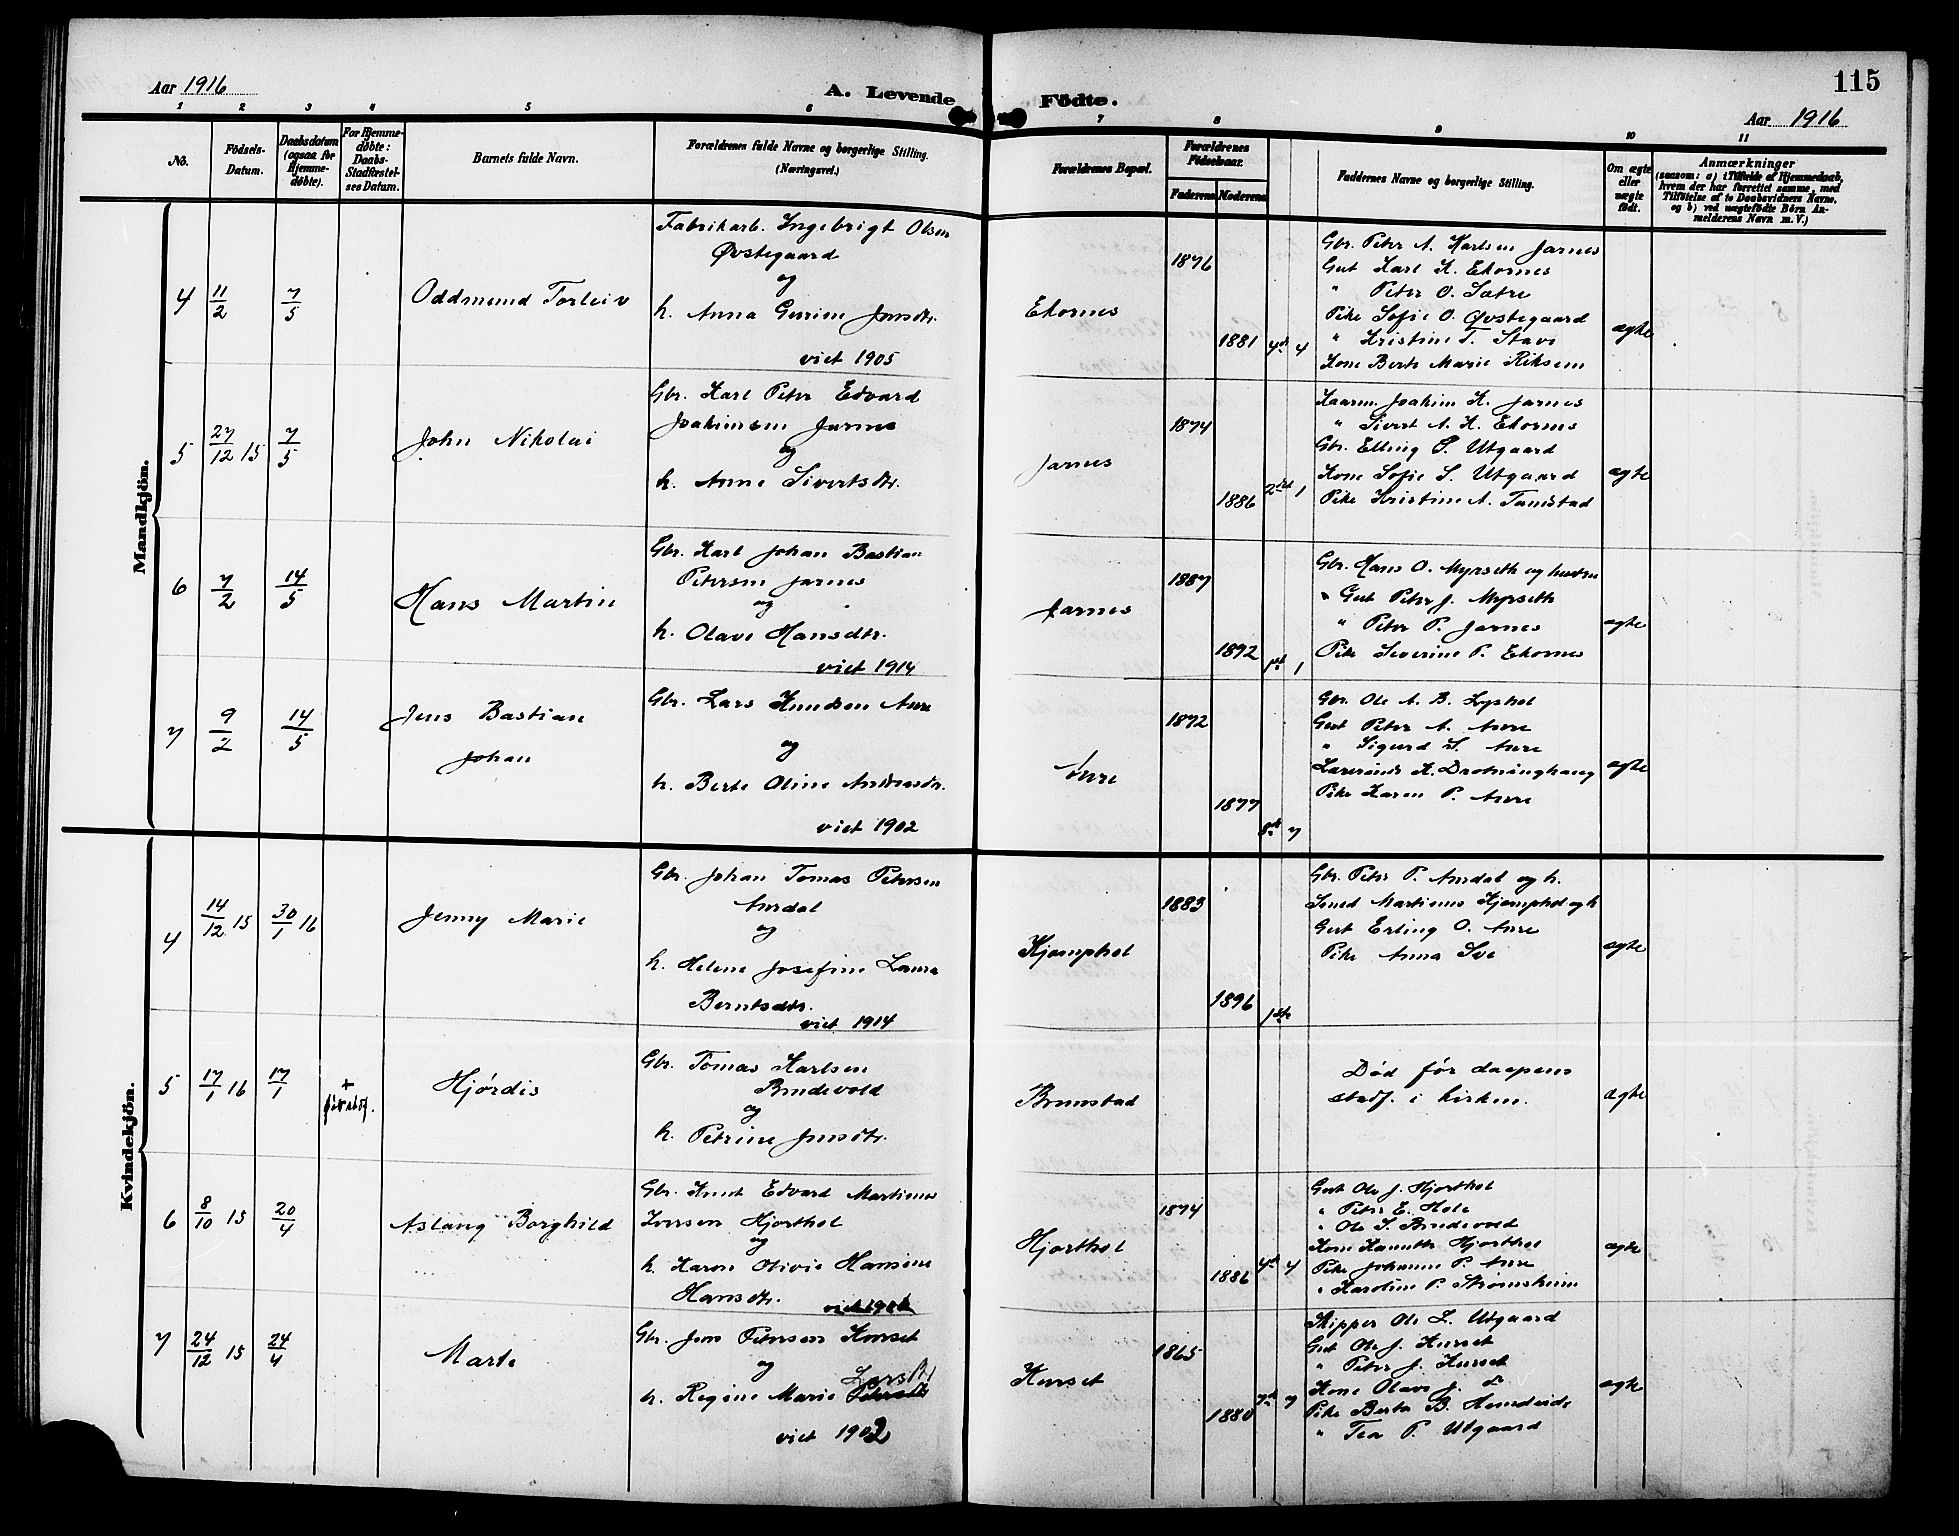 Aar 1916
A. Levende Födte.
115
Aar 1916
1 2 3 4 5 6 7 8 9 10 11
No.
Födsels-Datum.
Daabsdatum (ogsaa for Hjemmedöbte).
For Hjemmedöbte: Daabs-Stadfæstelses Datum.
Barnets fulde Navn.
Forældrenes fulde Navne og borgerlige Stilling. (Næringsvei.)
Forældrenes Bopæl.
Forældrenes Födselsaar.
Faderens Moderens
Faddernes Navne og borgerlige Stilling.
Om ægte eller uægte födt.
Anmærkninger
(saasom: a) i Tilfælde af Hjemmedaab,
hvem der har forrettet samme, med
Tilföielse af to Daabsvidners Navne,
og b) ved uægtefödte Börn An-
melderens Navn m. V.)
Mandkjön.
4 11/2 7/5 Oddmund Torleiv
Fabrikarb. Ingebrigt Olsen
Øvstegaard
og
h. Anna Gurine Jonsdtr.
viet 1905
Ekornes
1876
1881 4de 4
Gbr. Peter A. Karlsen Jarnes
Gut Karl K. Ekornes
" Peter O. Sætre
Pike Sofie O. Øvstegaard
" Kristine T. Stave
Kone Berte Marie Riksem
ægte
5 27/12 15 7/5 John Nikolai
Gbr. Karl Peter Edvard
Joakimsen Jarnes
og
h. Anne Sivertsdtr.
Jarnes
1874
1886 2det 1
Kaarm. Joakim K. Jarnes
" Sivert A. K. Ekornes
Gbr. Elling P. Utgaard
Kone Sofie S. Utgaard
Pike Kristine A. Tandstad
ægte
6 7/2 14/5 Hans Martin
Gbr. Karl Johan Bastian
Petersen Jarnes
og
h. Olave Hansdtr.
viet 1914
Jarnes
1887
1892 1ste 1
Gbr. Hans O. Myrseth og hustru
" Gut Peter J. Myrseth
" Peter P. Jarnes
Pike Severine P. Ekornes
ægte
7 9/2 14/5 Jens Bastian
Johan
Gbr. Lars Knudsen Aure
og
h. Berte Oline Andreasdtr.
viet 1902
Aure
1872
1877 8de 7
Gbr. Ole A. B. Lyshol
Gut Peter A. Aure
" Sigurd L. Aure
Lærerinde K. Drotninghaug
Pike Karen P. Aure
ægte
Kvindekjön.
4 14/12 15 30/1 16 Jenny Marie
Gbr. Johan Tomas Petersen
Aurdal
og
h. Helene Josefine Laura
Berntsdtr.
viet 1914
Kjemphol
1883
1896 1ste
Gbr. Peter P. Aurdal og h.
Smed Martinus Kjemphol og h
Gut Erling O. Aure
Pike Anna Sve
ægte
5 17/1 16 17/1 + før stadf. Hjørdis
Gbr. Tomas Karlsen
Brudevold
og
h. Petrine Jensdtr.
Brunstad
Død før daapens
stadf. i kirken.
ægte
6 8/10 15 20/4 Aslaug Borghild
Gbr. Knut Edvard Martinus
Iversen Hjorthol
og
h. Karen Olivie Hansine
Hansdtr.
Hjorthol
1874
1886 4de 4
Gut Ole J. Hjorthol
" Peter E. Hole
" Ole S. Brudevold
Kone Hjorthol
Pike Johanne P. Aure
" Karoline P. Strømsheim
ægte
7 24/12 15 24/4 Marte
Gbr. Jon Petersen Kurset
og
h. Regine Marie Petersdtr Larsdtr
viet 1902
Kurset
1865
1880 7de 7
Skipper Ole L. Utgaard
Gut Ole J. Kurset
" Peter J. Kurset
Kone Olave J. do
Pike Berta B. Hundeide
" Tea P. Utgaard
ægte